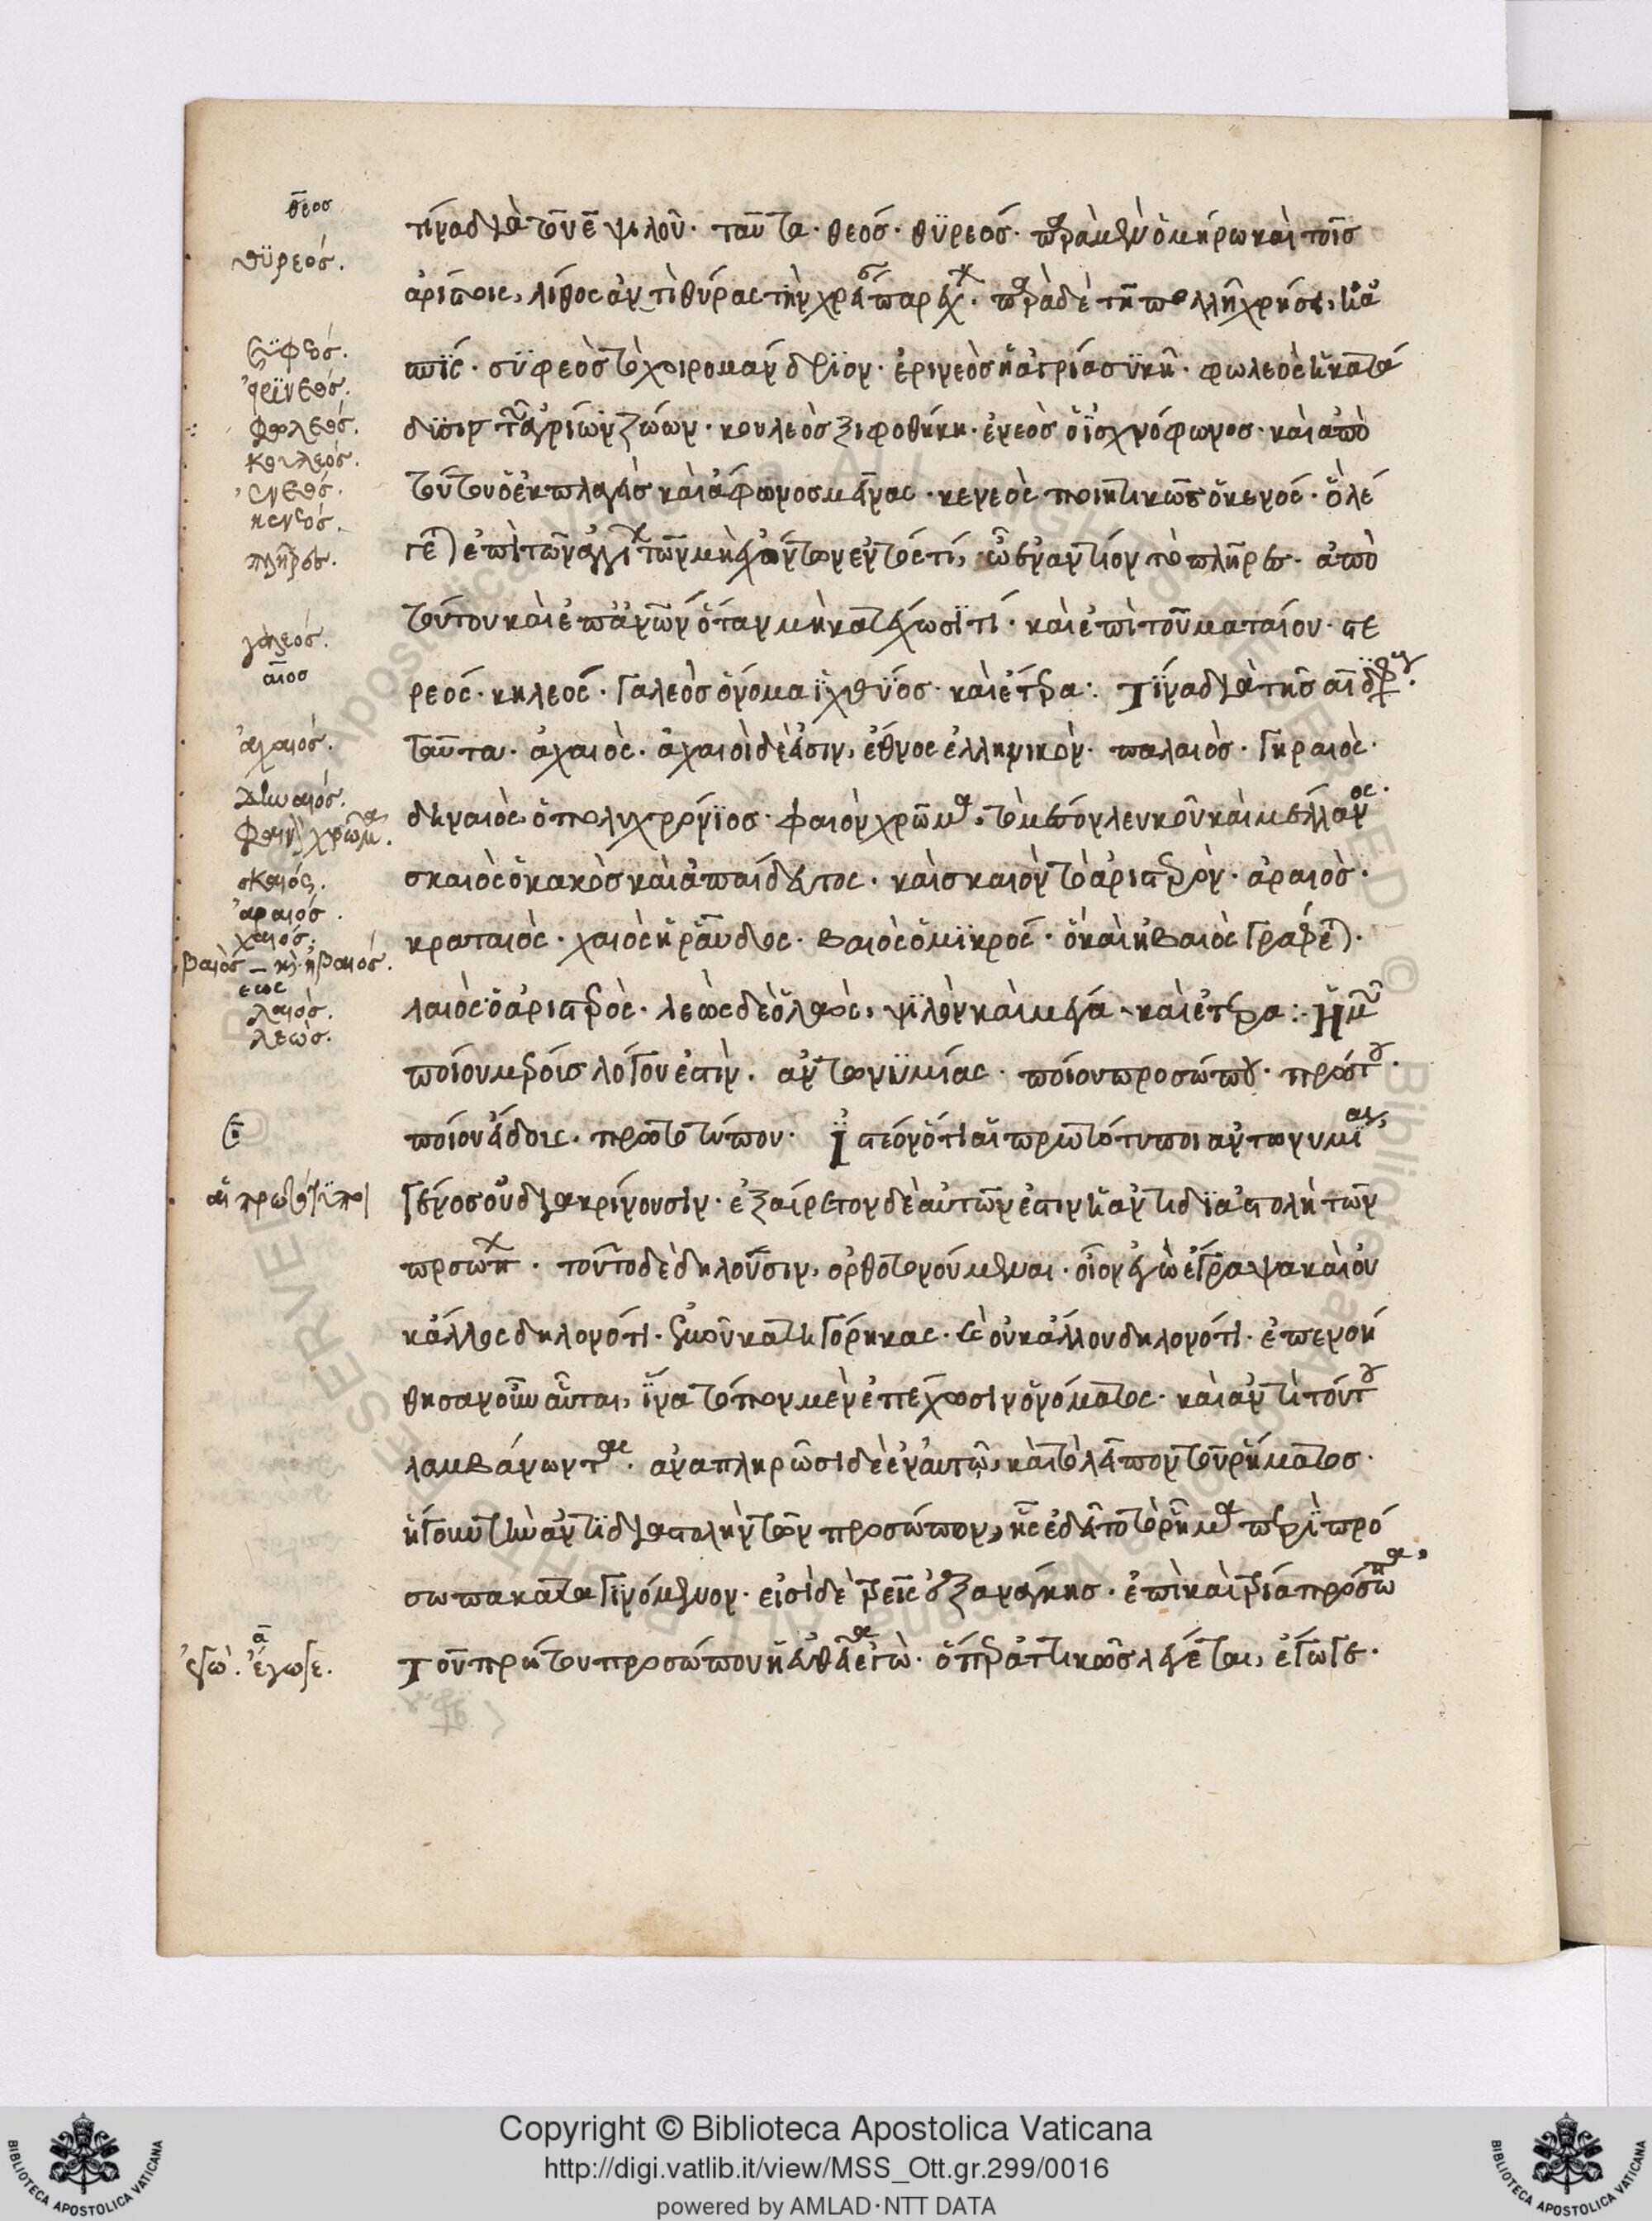 θεος
θϋρεός.
σϋφεός.
ἐρϊνεός.
φωλεός.
κουλεός.
ἐνεός.
κενεός.
πλῆρες.
γαλεός.
αιος
ἀχαιός.
δηναιός.
φαιὸν χρῶμα.
σκαιός.
ἀραιός.
χαιός.
βαιὸς – καὶ ἠβαιός.
εως
λαιός.
λεώς.
αἱ πρωτότϋποι
ἐγώ. ἔγωγε.
τίνα διὰ τοῦ ε̄ ψιλοῦ· ταῦτα· θεός· θϋρεός· παρὰ μὲν ὁμήρω καὶ τοῖς
ἀρίστοις, λίθος ἀντὶ θύρας τὴν χρείαν παρέχων· παρὰ δὲ τῆ πολλῆ χρήσει, ἡ ἀ
σπϊς· σϋφεὸς τὸ χοιρομανδρϊον· ἐρινεὸς ἡ ἀγρία σϋκῆ· φωλεὸς ἡ κατά
δϋσις τῶν ἀγρίων ζώων· κουλεὸς ξιφοθήκη· ἐνεὸς ὁ ϊσχνόφωνος· καὶ ἀπὸ
τούτου ὁ ἐκπλαγεὶς καὶ ἄφωνος μείνας· κενεὸς ποιητικῶς ὁ κενός· ὃ λέ
γεται ἐπὶ τῶν ἀγγείων τῶν μὴ ἐχόντων ἐντός τι, ὧ ἐναντίον τὸ πλῆρες· ἀπὸ
τούτου καὶ ἐπ ἀνθρώπων ὅταν μὴ κατέχωσί τι· καὶ ἐπὶ τοῦ ματαίου· στε
ρεός· κηλεός· γαλεὸς ὄνομα ϊχθϋος· καὶ ἕτερα: Τίνα διὰ τῆς αι διφθόγγου·
ταῦτα· ἀχαιὸς· ἀχαιοὶ δὲ εἰσιν, ἔθνος ἑλληνικόν· παλαιὸς· γηραιὸς·
δηναιὸς ὁ πολυχρόνϊος· φαιὸν χρῶμα· τὸ μέσον λευκοῦ καὶ μέλλανος·
σκαιὸς ὁ κακὸς καὶ ἀπαίδευτος· καὶ σκαιὸν τὸ ἀριστερόν· ἀραιὸς·
κραταιὸς· χαιὸς ἡ ράβδος· βαιὸς ὁ μϊκρός· ὁ καὶ ἠβαιὸς γράφεται·
λαιὸς ὁ ἀριστερὸς· λεὼς δὲ ὁ λαὸς, ψϊλὸν καὶ μέγα· καὶ ἕτερα: Ἡμῶν
ποίου μέρους λόγου ἐστὶν· ἀντωνυμίας· ποίου προσώπου· πρώτου·
ποίου εἴδους· πρωτοτύπου· Ϊστέον ὅτι αἱ πρωτότυποι ἀντωνυμίαι,
γένος οὐ διακρίνουσιν· ἐξαίρετον δὲ αὐτῶν ἐστιν ἡ ἀντιδϊαστολὴ τῶν
προσώπων· τοῦτο δὲ δηλοῦσιν, ὀρθοτονούμεναι· οἷον ἐγὼ ἔγραψα καὶ οὐκ
ἄλλος δηλονότι· ἐμοῦ κατηγόρηκας· καὶ οὐκ ἄλλου δηλονότι· ἐπενοή
θησαν οὖν αὗται, ἵνα τόπον μὲν ἐπέχωσιν ὀνόματος· καὶ ἀντὶ τούτου
λαμβάνωνται· ἀναπληρῶσι δὲ ἐν αὐτῶ, καὶ τὸ λεῖπον τοῦ ρήματος·
ἤγουν τὴν ἀντϊδιαστολὴν τῶν προσώπων, ἧς ἐδεῖτο τὸ ρῆμα περὶ πρό
σωπα καταγϊνόμενον· εἰσὶ δὲ τρεῖς ἐξ ἀνάγκης· ἐπὶ καὶ τρία πρόσωπα,
Τοῦ πρώτου προσώπου ἡ εὐθεῖα ἐγὼ· ὅπερ ἀττικῶς λέγεται, ἔγωγε·
Copyright © Biblioteca Apostolica Vaticana
http://digi.vatlib.it/view/MSS_Ott.gr.299/0016
powered by AMLAD·NTT DATA
BIBLIOTECA APOSTOLICA VATICANA
BIBLIOTECA APOSTOLICA VATICANA